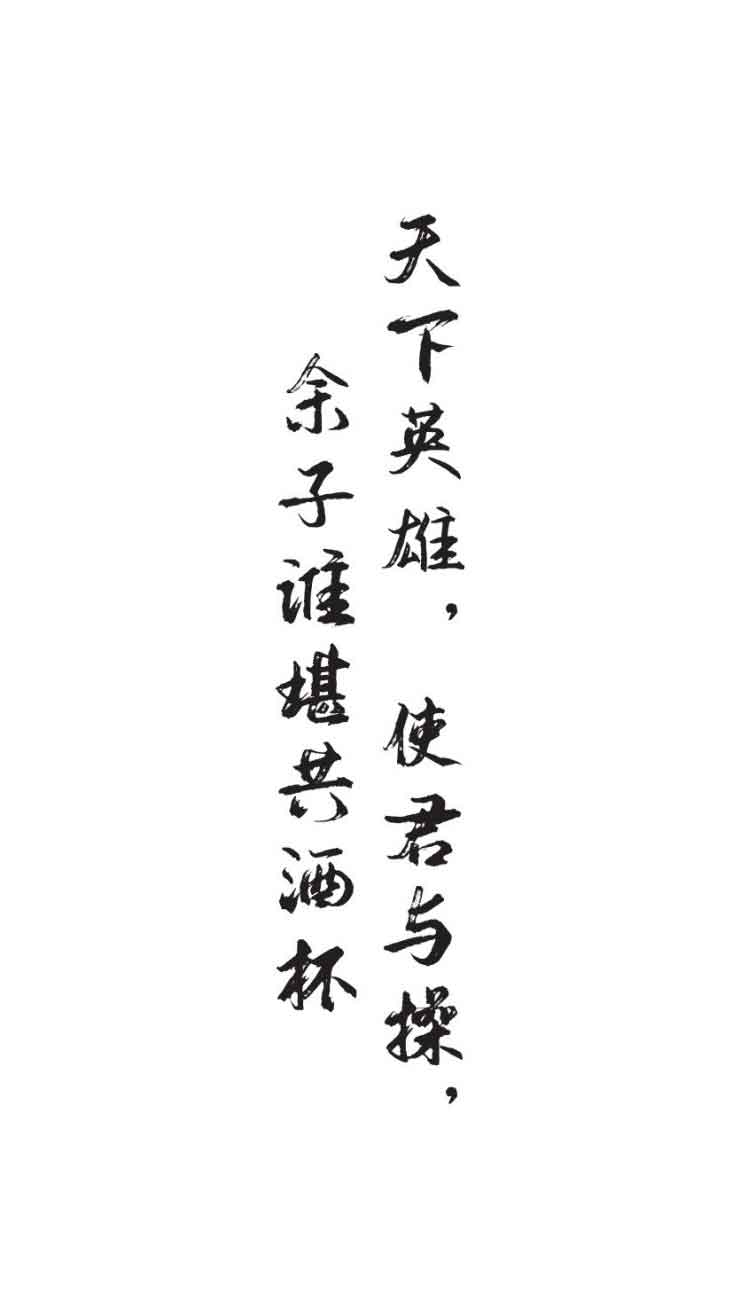 天下英雄，使君与操，
余子谁堪共酒杯